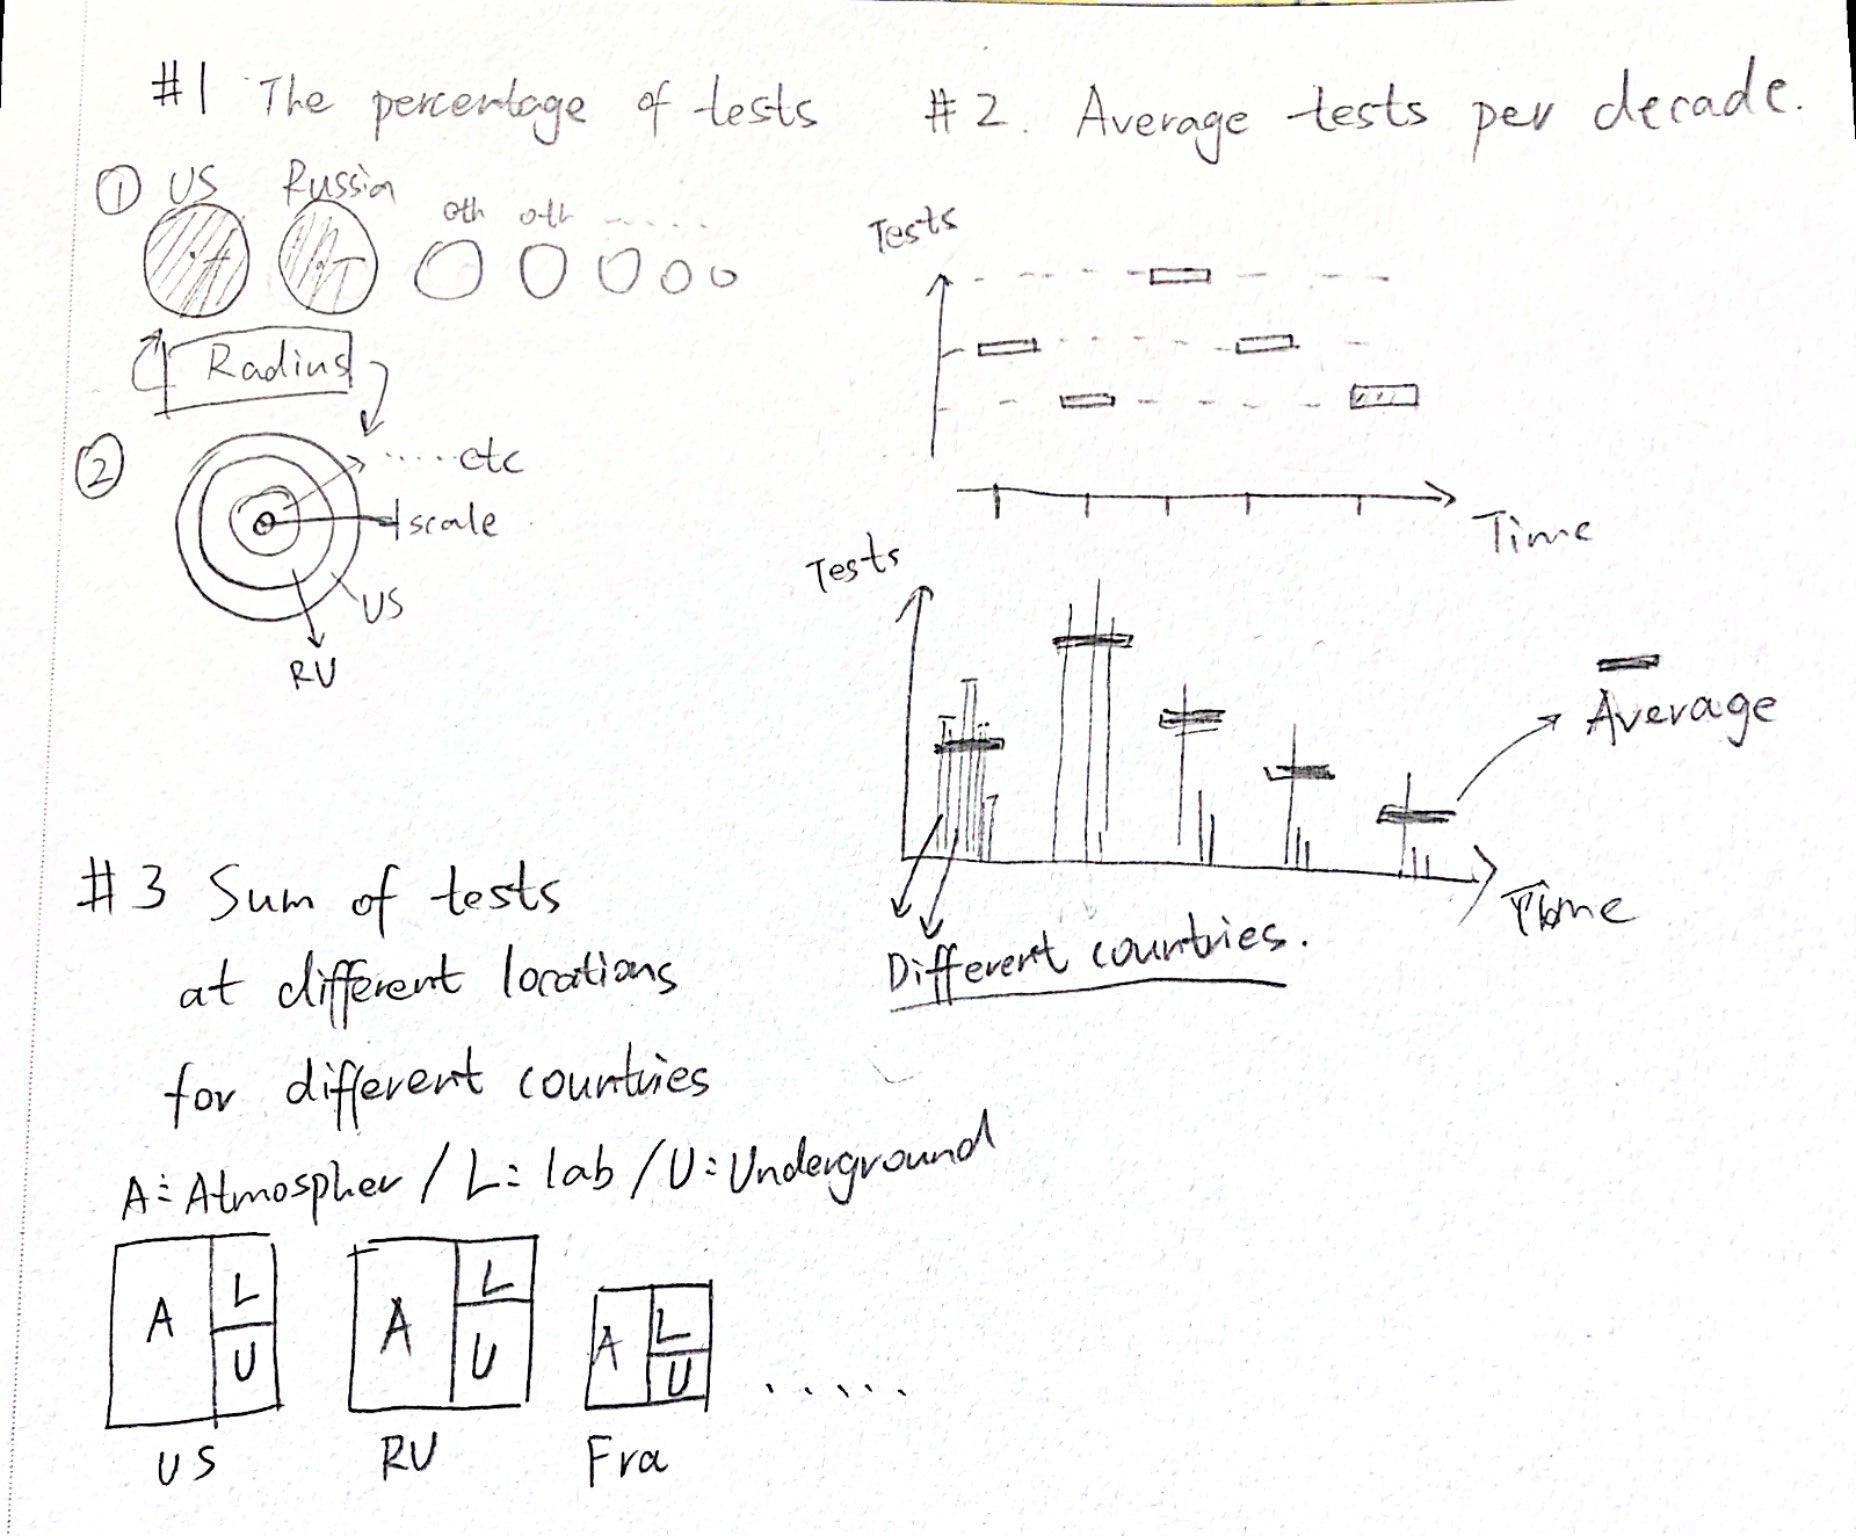 #1 The percentage of tests
① US Russia oth oth .....
Radius
②
.....etc
scale
US
RU
#2. Average tests per decade.
Tests
Time
Tests
Average
Time
Different countries.
#3 Sum of tests
at different locations
for different countries
A: Atmospher / L: lab / U: Underground
A L U
A L U
A L U
.....
US RU Fra